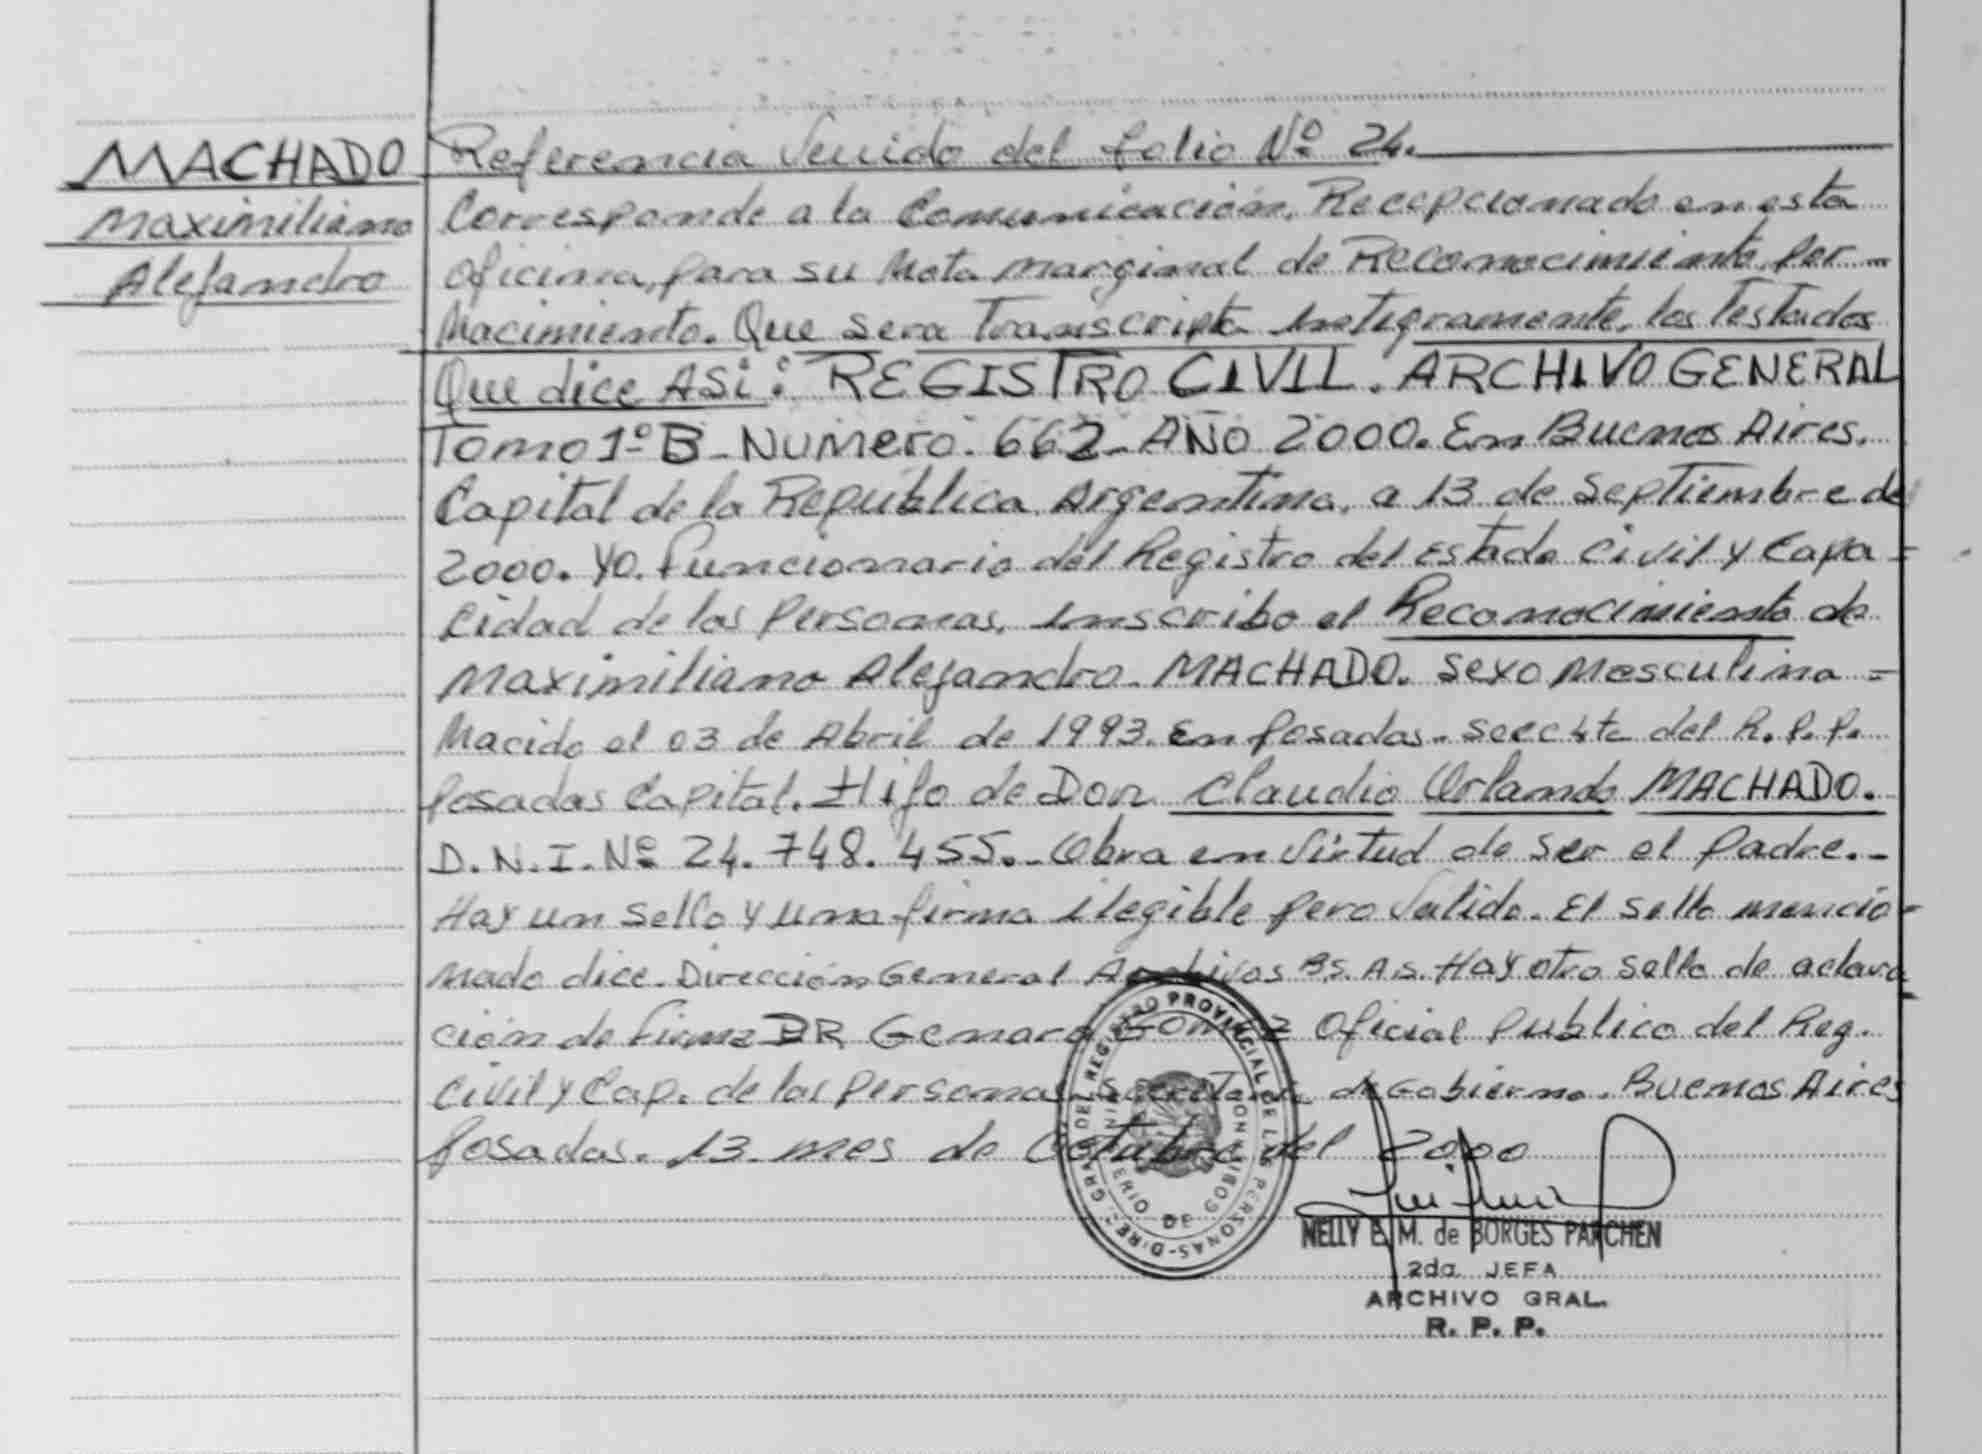 MACHADO
Maximiliano
Alejandro
Referencia Venido del folio Nº 24.
Corresponde a la Comunicación, Recepcionada en esta
Oficina, para su Nota marginal de Reconocimiento, Per
Nacimiento. Que sera Transcripta Integramente, los Testados
Que dice ASi: REGISTRO CIVIL. ARCHIVO GENERAL
Tomo 1º B - Numero. 662 - AÑO 2000. En Buenos Aires.
Capital de la Republica Argentina, a 13 de Septiembre de
2000. Yo. Funcionario del Registro del Estado Civil y Capa=
cidad de las Personas, Inscribo el Reconocimiento de
Maximiliano Alejandro - MACHADO. Sexo Masculino =
Nacido el 03 de Abril de 1993. En Posadas - Secc 4ta del R.P.P.
Posadas Capital. Hijo de Don Claudio Orlando MACHADO.
D.N.I. Nº 24.748.455. - Obra en Virtud de ser el Padre. -
Hay un Sello y una firma ilegible pero Valido. El sello mencio-
nado dice. Dirección General Archivos Bs. As. Hay otro sello de aclara
ción de Firma DR Genaro Gomez Oficial Publico del Reg.
Civil y Cap. de las Personas. Secretaria de Gobierno. Buenos Aires
Posadas. 13. mes de Octubre del 2000
DIREC. GRAL. DEL REGISTRO PROVINCIAL DE LAS PERSONAS
MINISTERIO DE GOBIERNO
NELLY E. M. de BORGES PARCHEN
2da JEFA
ARCHIVO GRAL.
R. P. P.